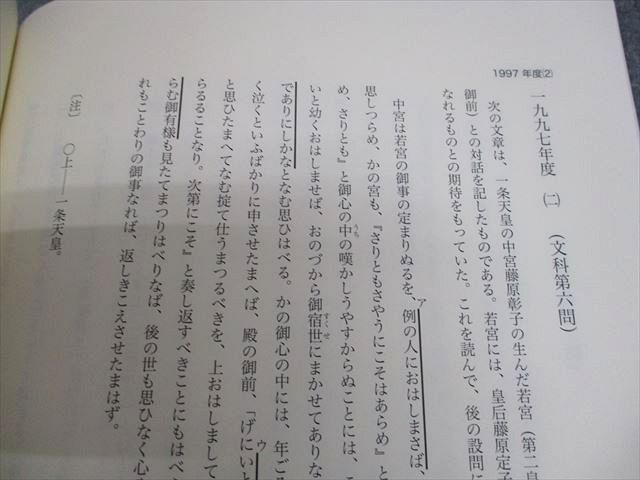 1997年度(2)
一九九七年度 (二) (文科第六問)
次の文章は、一条天皇の中宮藤原彰子の生んだ若宮(第二皇
御前)との対話を記したものである。若宮には、皇后藤原定子
なれるものとの期待をもっていた。これを読んで、後の設問に
中宮は若宮の御事の定まりぬるを、ア例の人におはしまさば、
思しつらめ、かの宮も、『さりともさやうにこそはあらめ』と
め、さりとも』と御心の中の嘆かしうやすからぬことには、こ
うち
いと幼くおはしませば、おのづから御宿世にまかせてありな
すくせ
でありにしかなとなむ思ひはべる。かの御心の中には、年ごろ
く泣くといふばかりに申させたまへば、殿の御前、「げにいと
ウ
と思ひたまへてなむ掟て仕うまつるべきを、上おはしまして
らるることなり。次第にこそ』と奏し返すべきことにもはべ
らむ御有様も見たてまつりはべりなば、後の世も思ひなく心
れもことわりの御事なれば、返しきこえさせたまはず。
〔注〕 ○上――一条天皇。